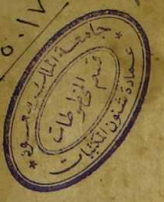 ٥٠١٧
جامعة الملك سعود
قسم المخطوطات
عمادة شئون المكتبات